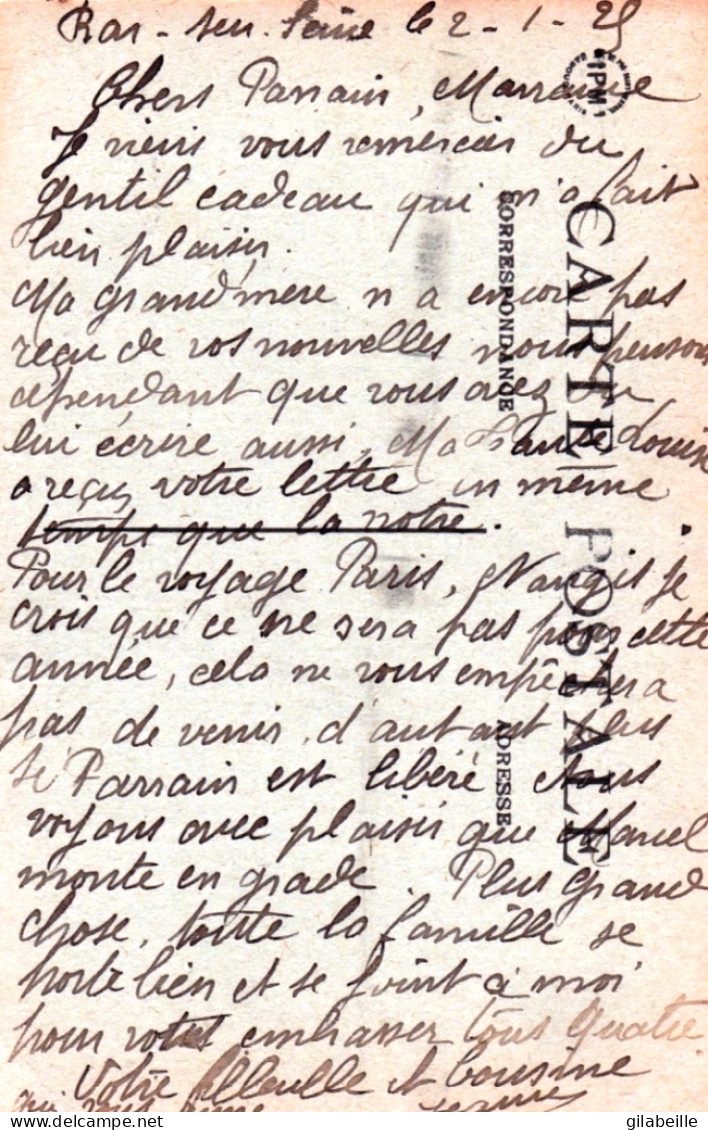 Bar-seu-Seine le 2-1-25
Chers Parrain, Marraine
Je viens vous remercier du
gentil cadeau qui m'a fait
bien plaisir.
Ma grand mère n a encore pas
reçu de vos nouvelles nous pensons
cependant que vous avez du
lui écrire aussi, Ma Tante Louise
a reçu votre lettre en même
temps que la notre.
Pour le voyage Paris, Nangis je
crois que ce ne sera pas pour cette
année, cela ne vous empêchera
pas de venir, d'autant plus
si Parrain est libéré Nous
voyons avec plaisir que Marcel
monte en grade. Plus grand
chose, toute la famille se
porte bien et se joint à moi
pour vous embrasser tous quatre
Votre filleulle et Cousine
qui vous aime
CARTE POSTALE
CORRESPONDANCE
ADRESSE
IPM
delcampe.net
gilabeille